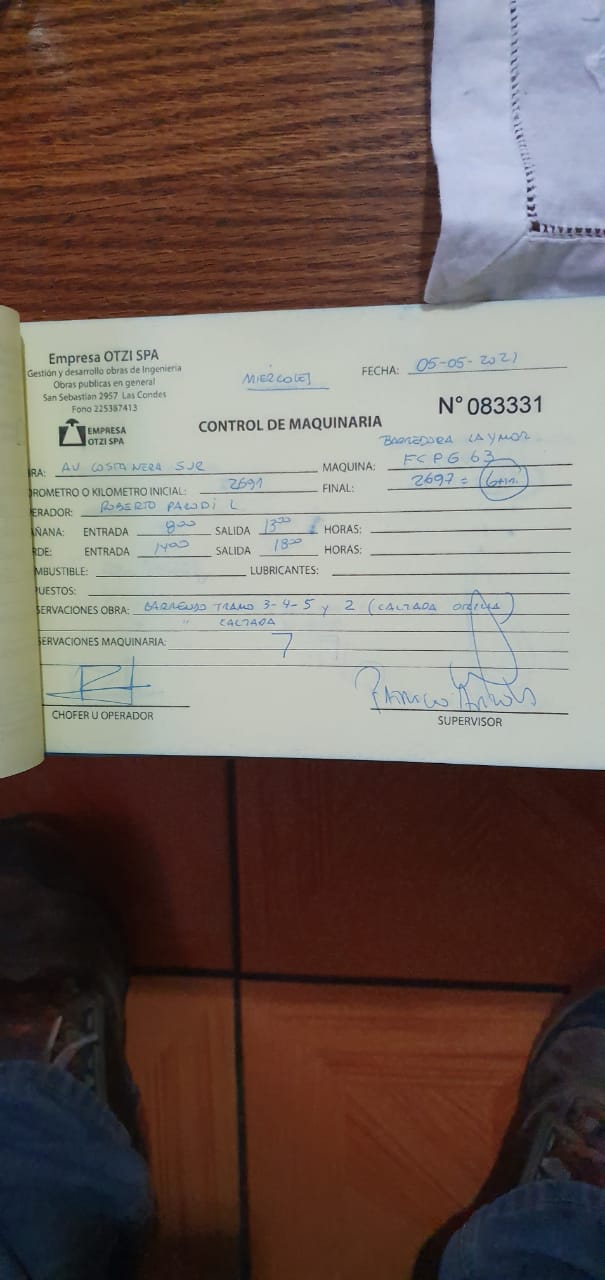 Empresa OTZI SPA
Gestión y desarrollo obras de Ingenieria
Obras publicas en general
San Sebastian 2957 Las Condes
Fono 225387413
EMPRESA
OTZI SPA
MIERCOLES
FECHA: 05-05-2021
N° 083331
CONTROL DE MAQUINARIA
BARREDORA LAYMOR
RA: AV COSTANERA SUR MAQUINA: FCPG 63
OROMETRO O KILOMETRO INICIAL: 2691 FINAL: 2697 =
ERADOR: ROBERTO PARODI L
ÑANA: ENTRADA 8:00 SALIDA 13:00 HORAS:
RDE: ENTRADA 14:00 SALIDA 18:00 HORAS:
MBUSTIBLE: LUBRICANTES:
PUESTOS:
SERVACIONES OBRA: BARRENDO TRAMO 3-4-5 y 2 (CALZADA ORILLA)
" CALZADA
SERVACIONES MAQUINARIA: 7
CHOFER U OPERADOR
SUPERVISOR